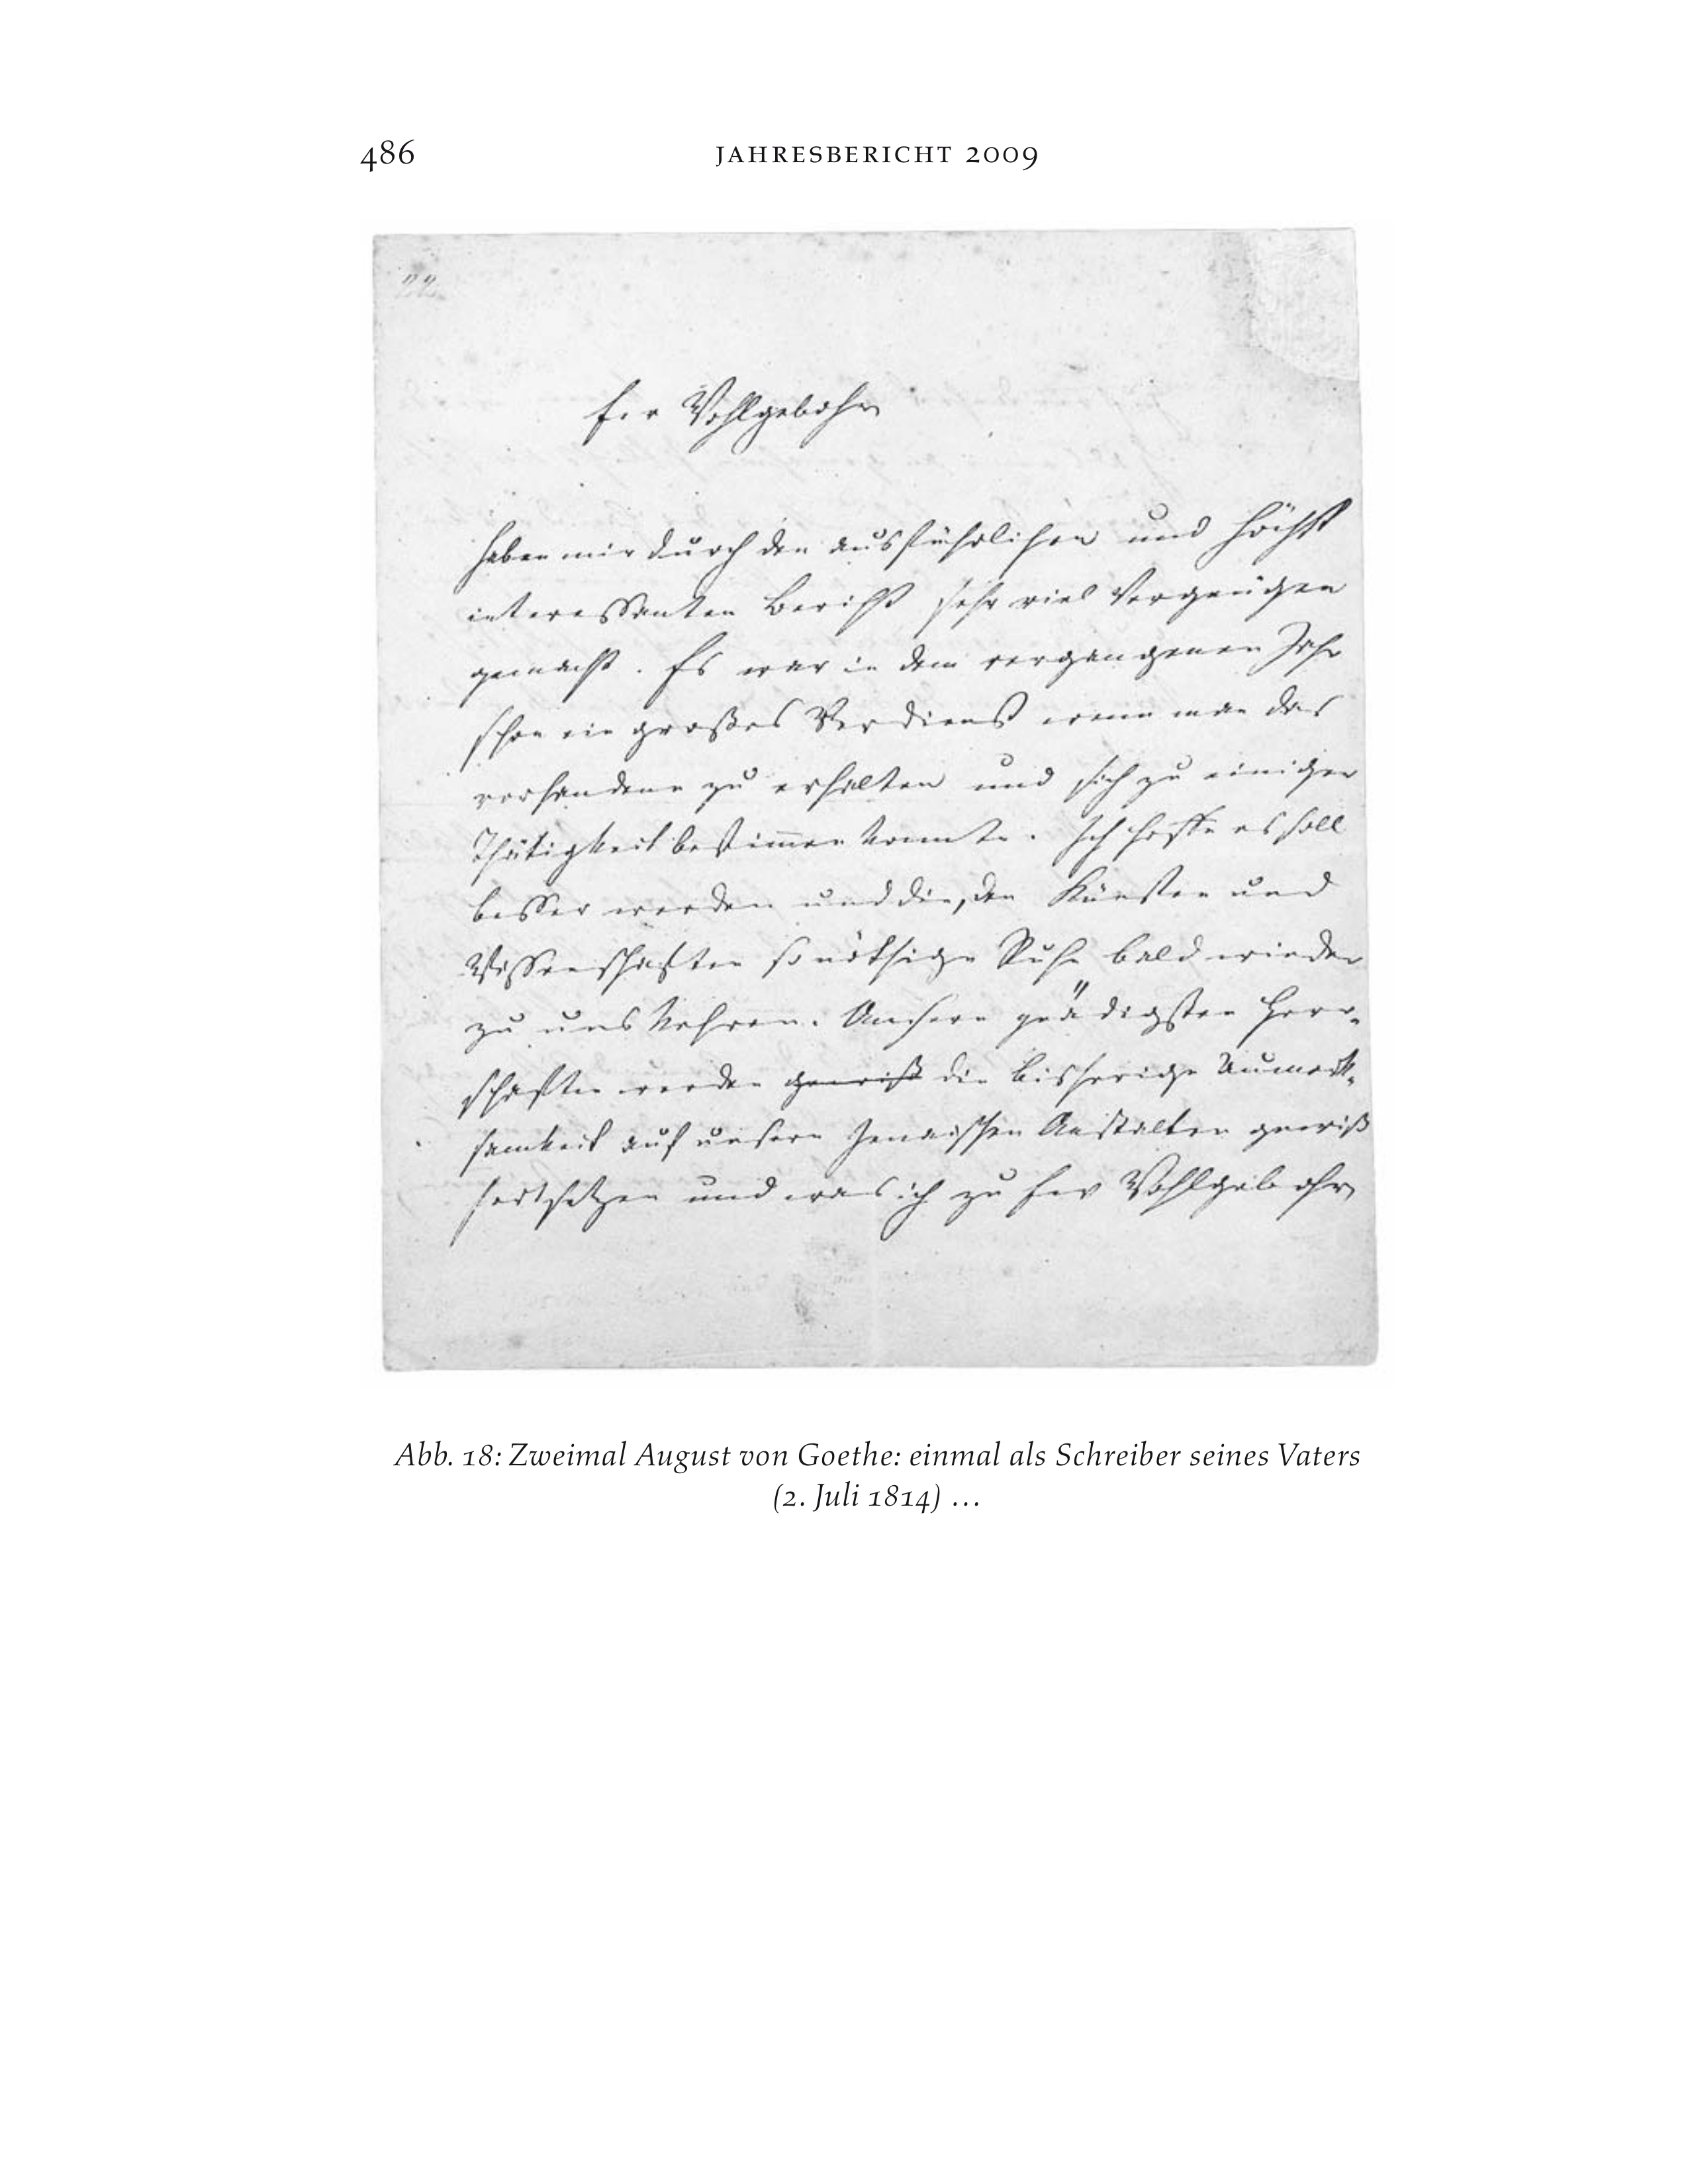 486
JAHRESBERICHT 2009
22.
Ew Wohlgebohrn
haben mir durch den ausführlichen und höchst
interessanten Bericht sehr viel Vergnügen
gemacht. Es war in dem vergangenen Jahr
schon ein großes Verdienst wenn man das
vorhandene zu erhalten und sich zu einiger
Thätigkeit bestim̄en konnte. Ich hoffe es soll
besser werden und die, den Künsten und
Wissenschaften so nöthige Ruhe bald wieder
zu uns kehren. Unsere gnädigsten Herr-
schaften werden gewiß die bisherige Aumerk-
samkeit auf unsere Jenaischen Anstalten gewiß
fortsetzen und was ich zu Ew Wohlgebohrn
Abb. 18: Zweimal August von Goethe: einmal als Schreiber seines Vaters
(2. Juli 1814) …